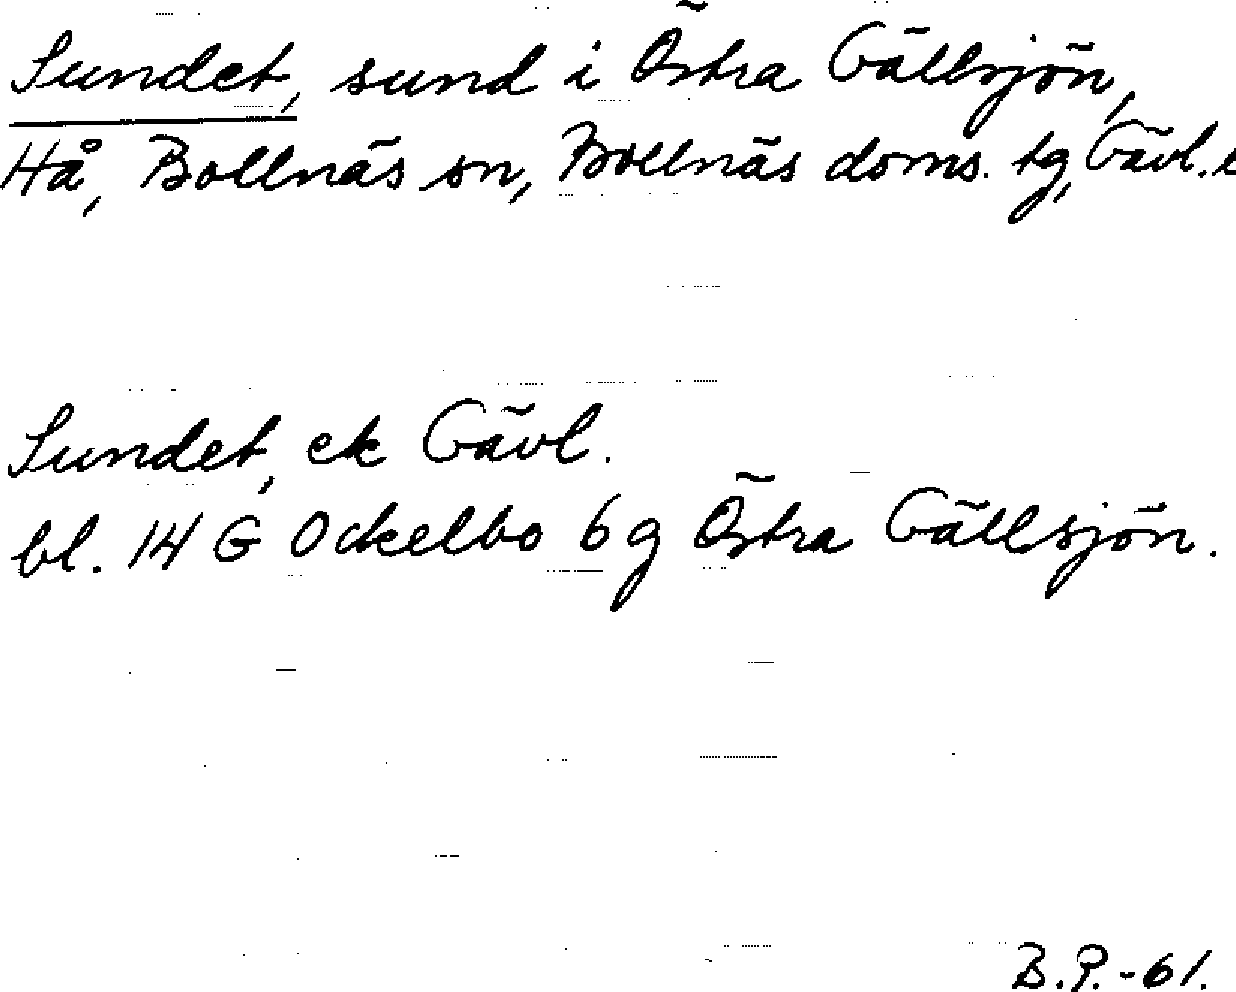 Sundet, sund i Östra Gällsjön,
Hå, Bollnäs sn, Bollnäs doms. tg, Gävl. l
Sundet, ek Gävl.
bl. 14 G Ockelbo 6 g Östra Gällsjön.
B.P.-61.